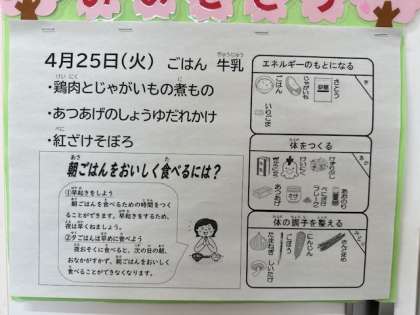 4月25日(火) ごはん 牛乳
ぎゅうにゅう
・鶏肉とじゃがいもの煮もの
・あつあげのしょうゆだれかけ
・紅ざけそぼろ
朝ごはんをおいしく食べるには?
①早起きをしよう
朝ごはんを食べるための時間をつく
ることができます。早起きをするため、
夜は早くねましょう。
②夕ごはんは早めに食べよう
夜おそくに食べると、次の日の朝、
おなかがすかず、朝ごはんをおいしく
食べることができなくなります。
エネルギーのもとになる
き
ごはん
じゃがいも
さとう
体をつくる
あか
あつあげ
体の調子を整える
みどり
たまねぎ
ごぼう
にんじん
しいたけ